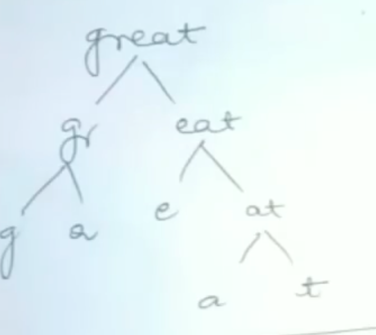 great
gr eat
g r e at
a t